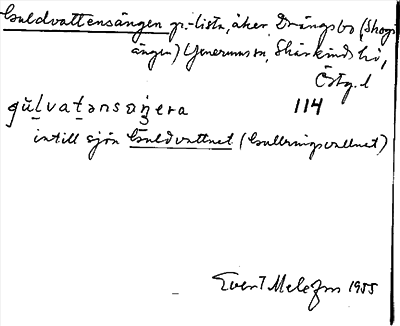 Guldvattensängen gr.-lista, åker, Drängsbo (Skogs
ängen) Yxnerums sn, Skärkinds hd,
Östg. l
gu̇lvatənsɑŋera 114
intill sjön Guldvattnet (Gullringsvattnet)
Evert Melefors 1955